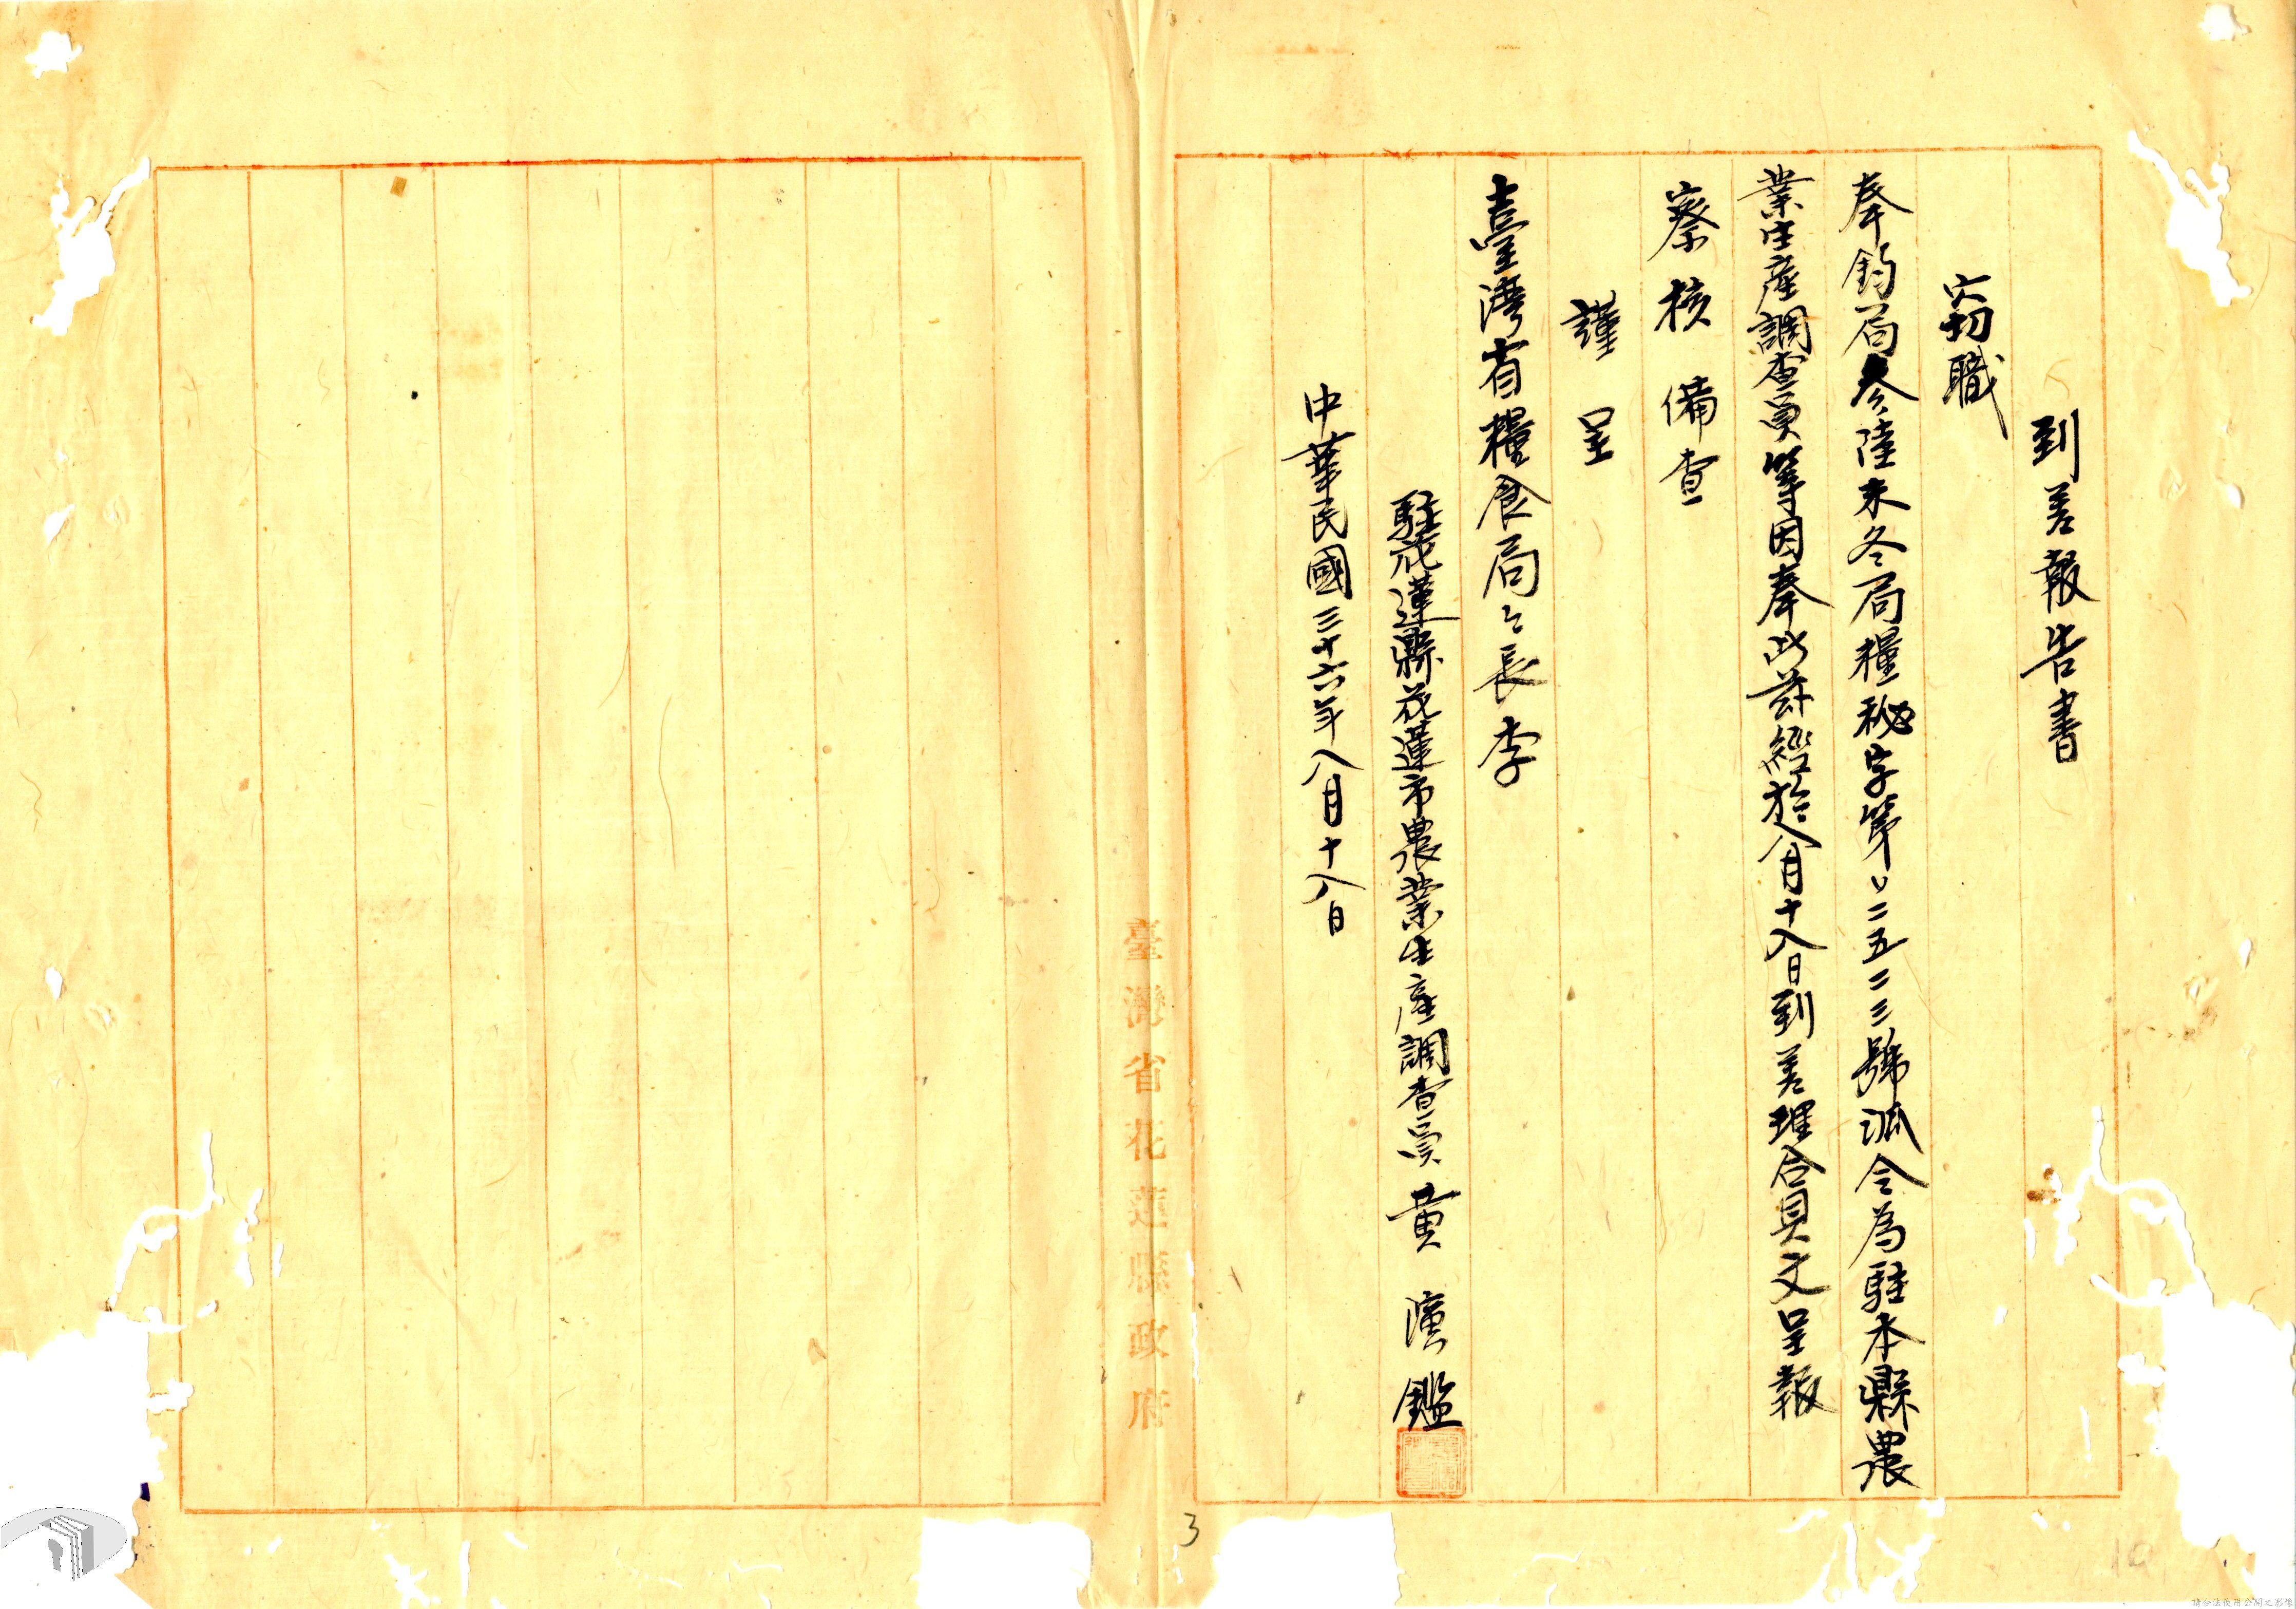 到差報告書
竊職
奉鈞局叁陸未冬局糧秘字第二二五二三號派令為駐本縣農
業生產調查員等因奉此茲經於八月十八日到差理合具文呈報
察核備查
謹呈
臺灣省糧食局々長李
駐花蓮縣花蓮市農業生產調查員 黃 演 鑑
中華民國三十六年八月十八日
臺灣省花蓮縣政府
3
10
請合法使用公開之影像